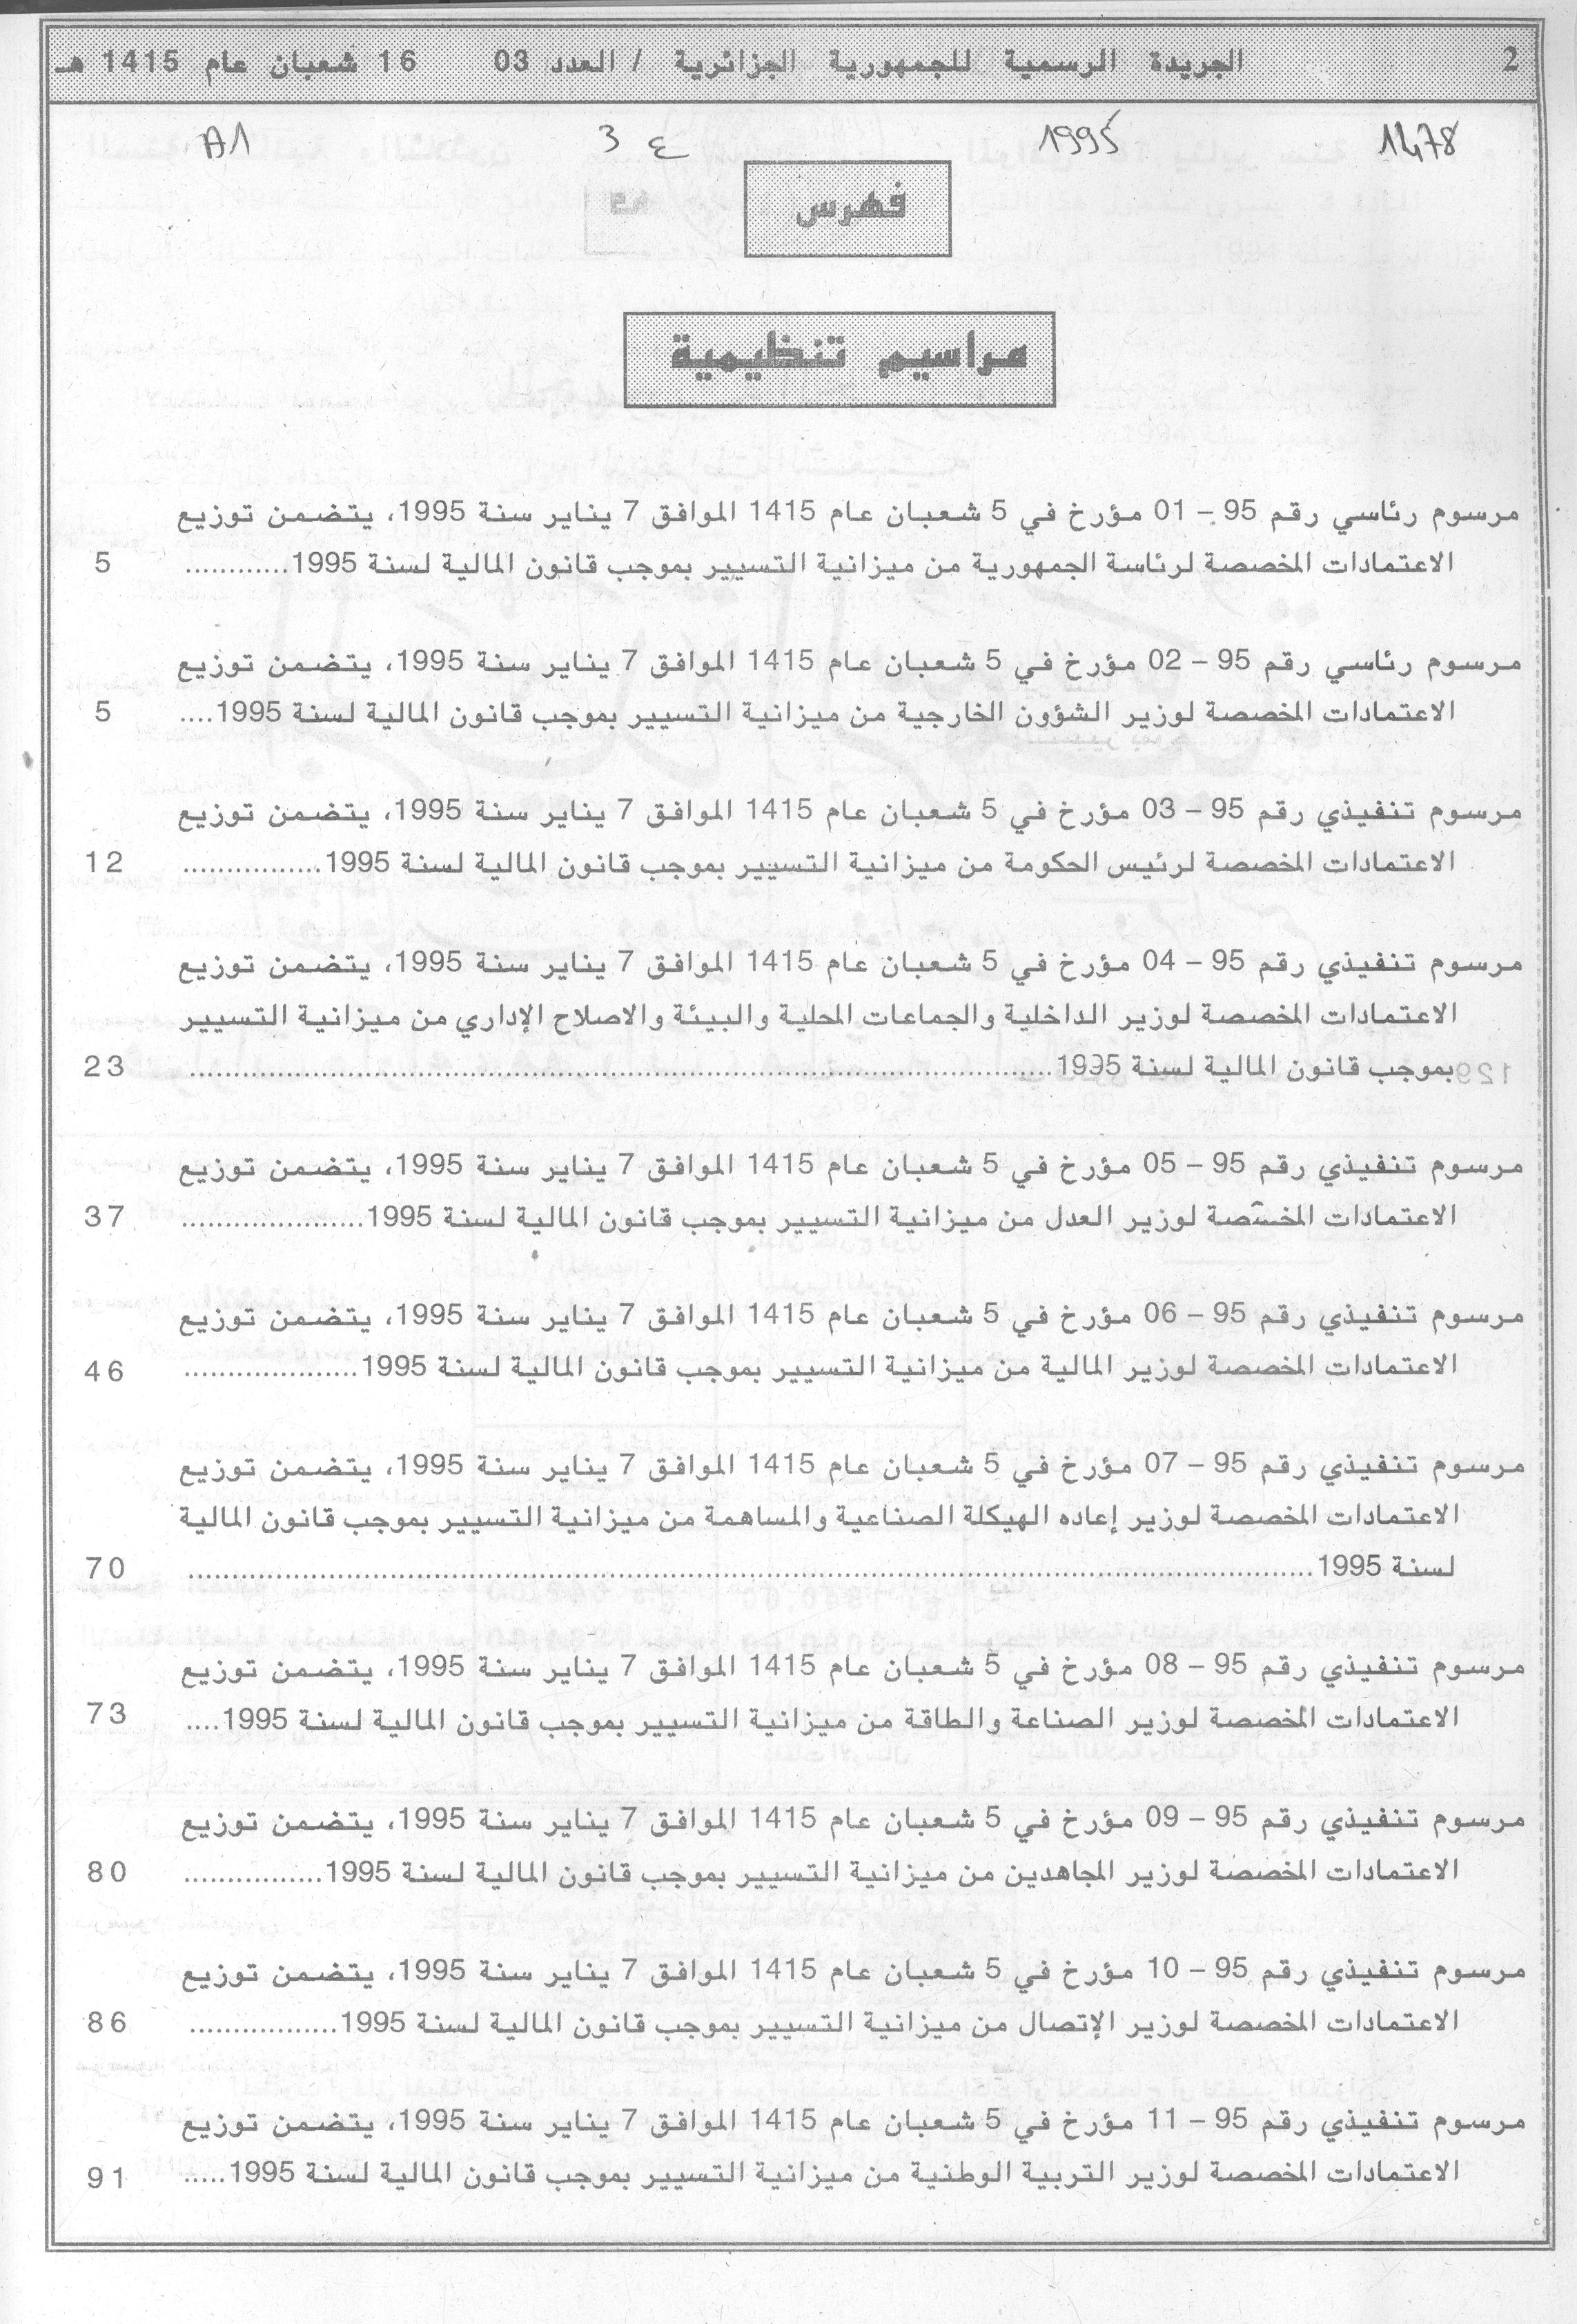 2 الجريدة الرسمية للجمهورية الجزائرية / العدد 03 16 شعبان عام 1415 هـ
1478 1995 3 ع A1
فهرس
مراسيم تنظيمية
مرسوم رئاسي رقم 95 – 01 مؤرخ في 5 شعبان عام 1415 الموافق 7 يناير سنة 1995، يتضمن توزيع
الاعتمادات المخصصة لرئاسة الجمهورية من ميزانية التسيير بموجب قانون المالية لسنة 1995............ 5
مرسوم رئاسي رقم 95 – 02 مؤرخ في 5 شعبان عام 1415 الموافق 7 يناير سنة 1995، يتضمن توزيع
الاعتمادات المخصصة لوزير الشؤون الخارجية من ميزانية التسيير بموجب قانون المالية لسنة 1995.... 5
مرسوم تنفيذي رقم 95 – 03 مؤرخ في 5 شعبان عام 1415 الموافق 7 يناير سنة 1995، يتضمن توزيع
الاعتمادات المخصصة لرئيس الحكومة من ميزانية التسيير بموجب قانون المالية لسنة 1995................ 12
مرسوم تنفيذي رقم 95 – 04 مؤرخ في 5 شعبان عام 1415 الموافق 7 يناير سنة 1995، يتضمن توزيع
الاعتمادات المخصصة لوزير الداخلية والجماعات المحلية والبيئة والاصلاح الإداري من ميزانية التسيير
بموجب قانون المالية لسنة 1995.................................................................................... 23
مرسوم تنفيذي رقم 95 – 05 مؤرخ في 5 شعبان عام 1415 الموافق 7 يناير سنة 1995، يتضمن توزيع
الاعتمادات المخصصة لوزير العدل من ميزانية التسيير بموجب قانون المالية لسنة 1995..................... 37
مرسوم تنفيذي رقم 95 – 06 مؤرخ في 5 شعبان عام 1415 الموافق 7 يناير سنة 1995، يتضمن توزيع
الاعتمادات المخصصة لوزير المالية من ميزانية التسيير بموجب قانون المالية لسنة 1995.................... 46
مرسوم تنفيذي رقم 95 – 07 مؤرخ في 5 شعبان عام 1415 الموافق 7 يناير سنة 1995، يتضمن توزيع
الاعتمادات المخصصة لوزير إعاده الهيكلة الصناعية والمساهمة من ميزانية التسيير بموجب قانون المالية
لسنة 1995.............................................................................................................. 70
مرسوم تنفيذي رقم 95 – 08 مؤرخ في 5 شعبان عام 1415 الموافق 7 يناير سنة 1995، يتضمن توزيع
الاعتمادات المخصصة لوزير الصناعة والطاقة من ميزانية التسيير بموجب قانون المالية لسنة 1995.... 73
مرسوم تنفيذي رقم 95 – 09 مؤرخ في 5 شعبان عام 1415 الموافق 7 يناير سنة 1995، يتضمن توزيع
الاعتمادات المخصصة لوزير المجاهدين من ميزانية التسيير بموجب قانون المالية لسنة 1995................ 80
مرسوم تنفيذي رقم 95 – 10 مؤرخ في 5 شعبان عام 1415 الموافق 7 يناير سنة 1995، يتضمن توزيع
الاعتمادات المخصصة لوزير الإتصال من ميزانية التسيير بموجب قانون المالية لسنة 1995................. 86
مرسوم تنفيذي رقم 95 – 11 مؤرخ في 5 شعبان عام 1415 الموافق 7 يناير سنة 1995، يتضمن توزيع
الاعتمادات المخصصة لوزير التربية الوطنية من ميزانية التسيير بموجب قانون المالية لسنة 1995..... 91